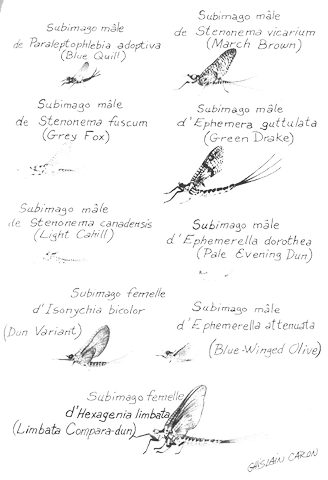 Subimago mâle
de Paraleptophlebia adoptiva
(Blue Quill)
Subimago mâle
de Stenonema vicarium
(March Brown)
Subimago mâle
de Stenonema fuscum
(Grey Fox)
Subimago mâle
d'Ephemera guttulata
(Green Drake)
Subimago mâle
de Stenonema canadensis
(Light Cahill)
Subimago mâle
d'Ephemerella dorothea
(Pale Evening Dun)
Subimago femelle
d'Isonychia bicolor
(Dun Variant)
Subimago mâle
d'Ephemerella attenuata
(Blue-Winged Olive)
Subimago femelle
d'Hexagenia limbata
(Limbata Compara-dun)
GHISLAIN CARON